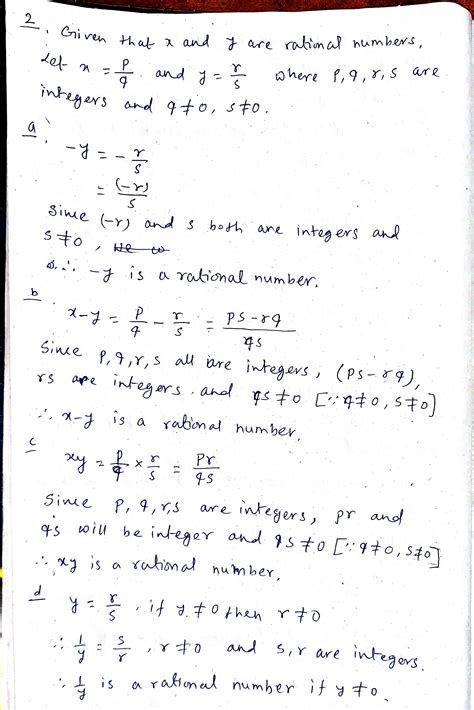 2. Given that x and y are rational numbers,
Let x = p/q and y = r/s where p, q, r, s are
integers and q ≠ 0, s ≠ 0.
a. -y = - r/s
= (-r)/s
Since (-r) and s both are integers and
s ≠ 0,
∴ -y is a rational number.
b x-y = p/q - r/s = (ps-rq)/qs
Since p, q, r, s all are integers, (ps-rq),
rs are integers. and qs ≠ 0 [∵ q ≠ 0, s ≠ 0]
∴ x-y is a rational number.
c xy = p/q × r/s = pr/qs
Since p, q, r, s are integers, pr and
qs will be integer and qs ≠ 0 [∵ q ≠ 0, s ≠ 0]
∴ xy is a rational number.
d y = r/s, if y ≠ 0 then r ≠ 0
∴ 1/y = s/r, r ≠ 0 and s, r are integers.
∴ 1/y is a rational number if y ≠ 0.